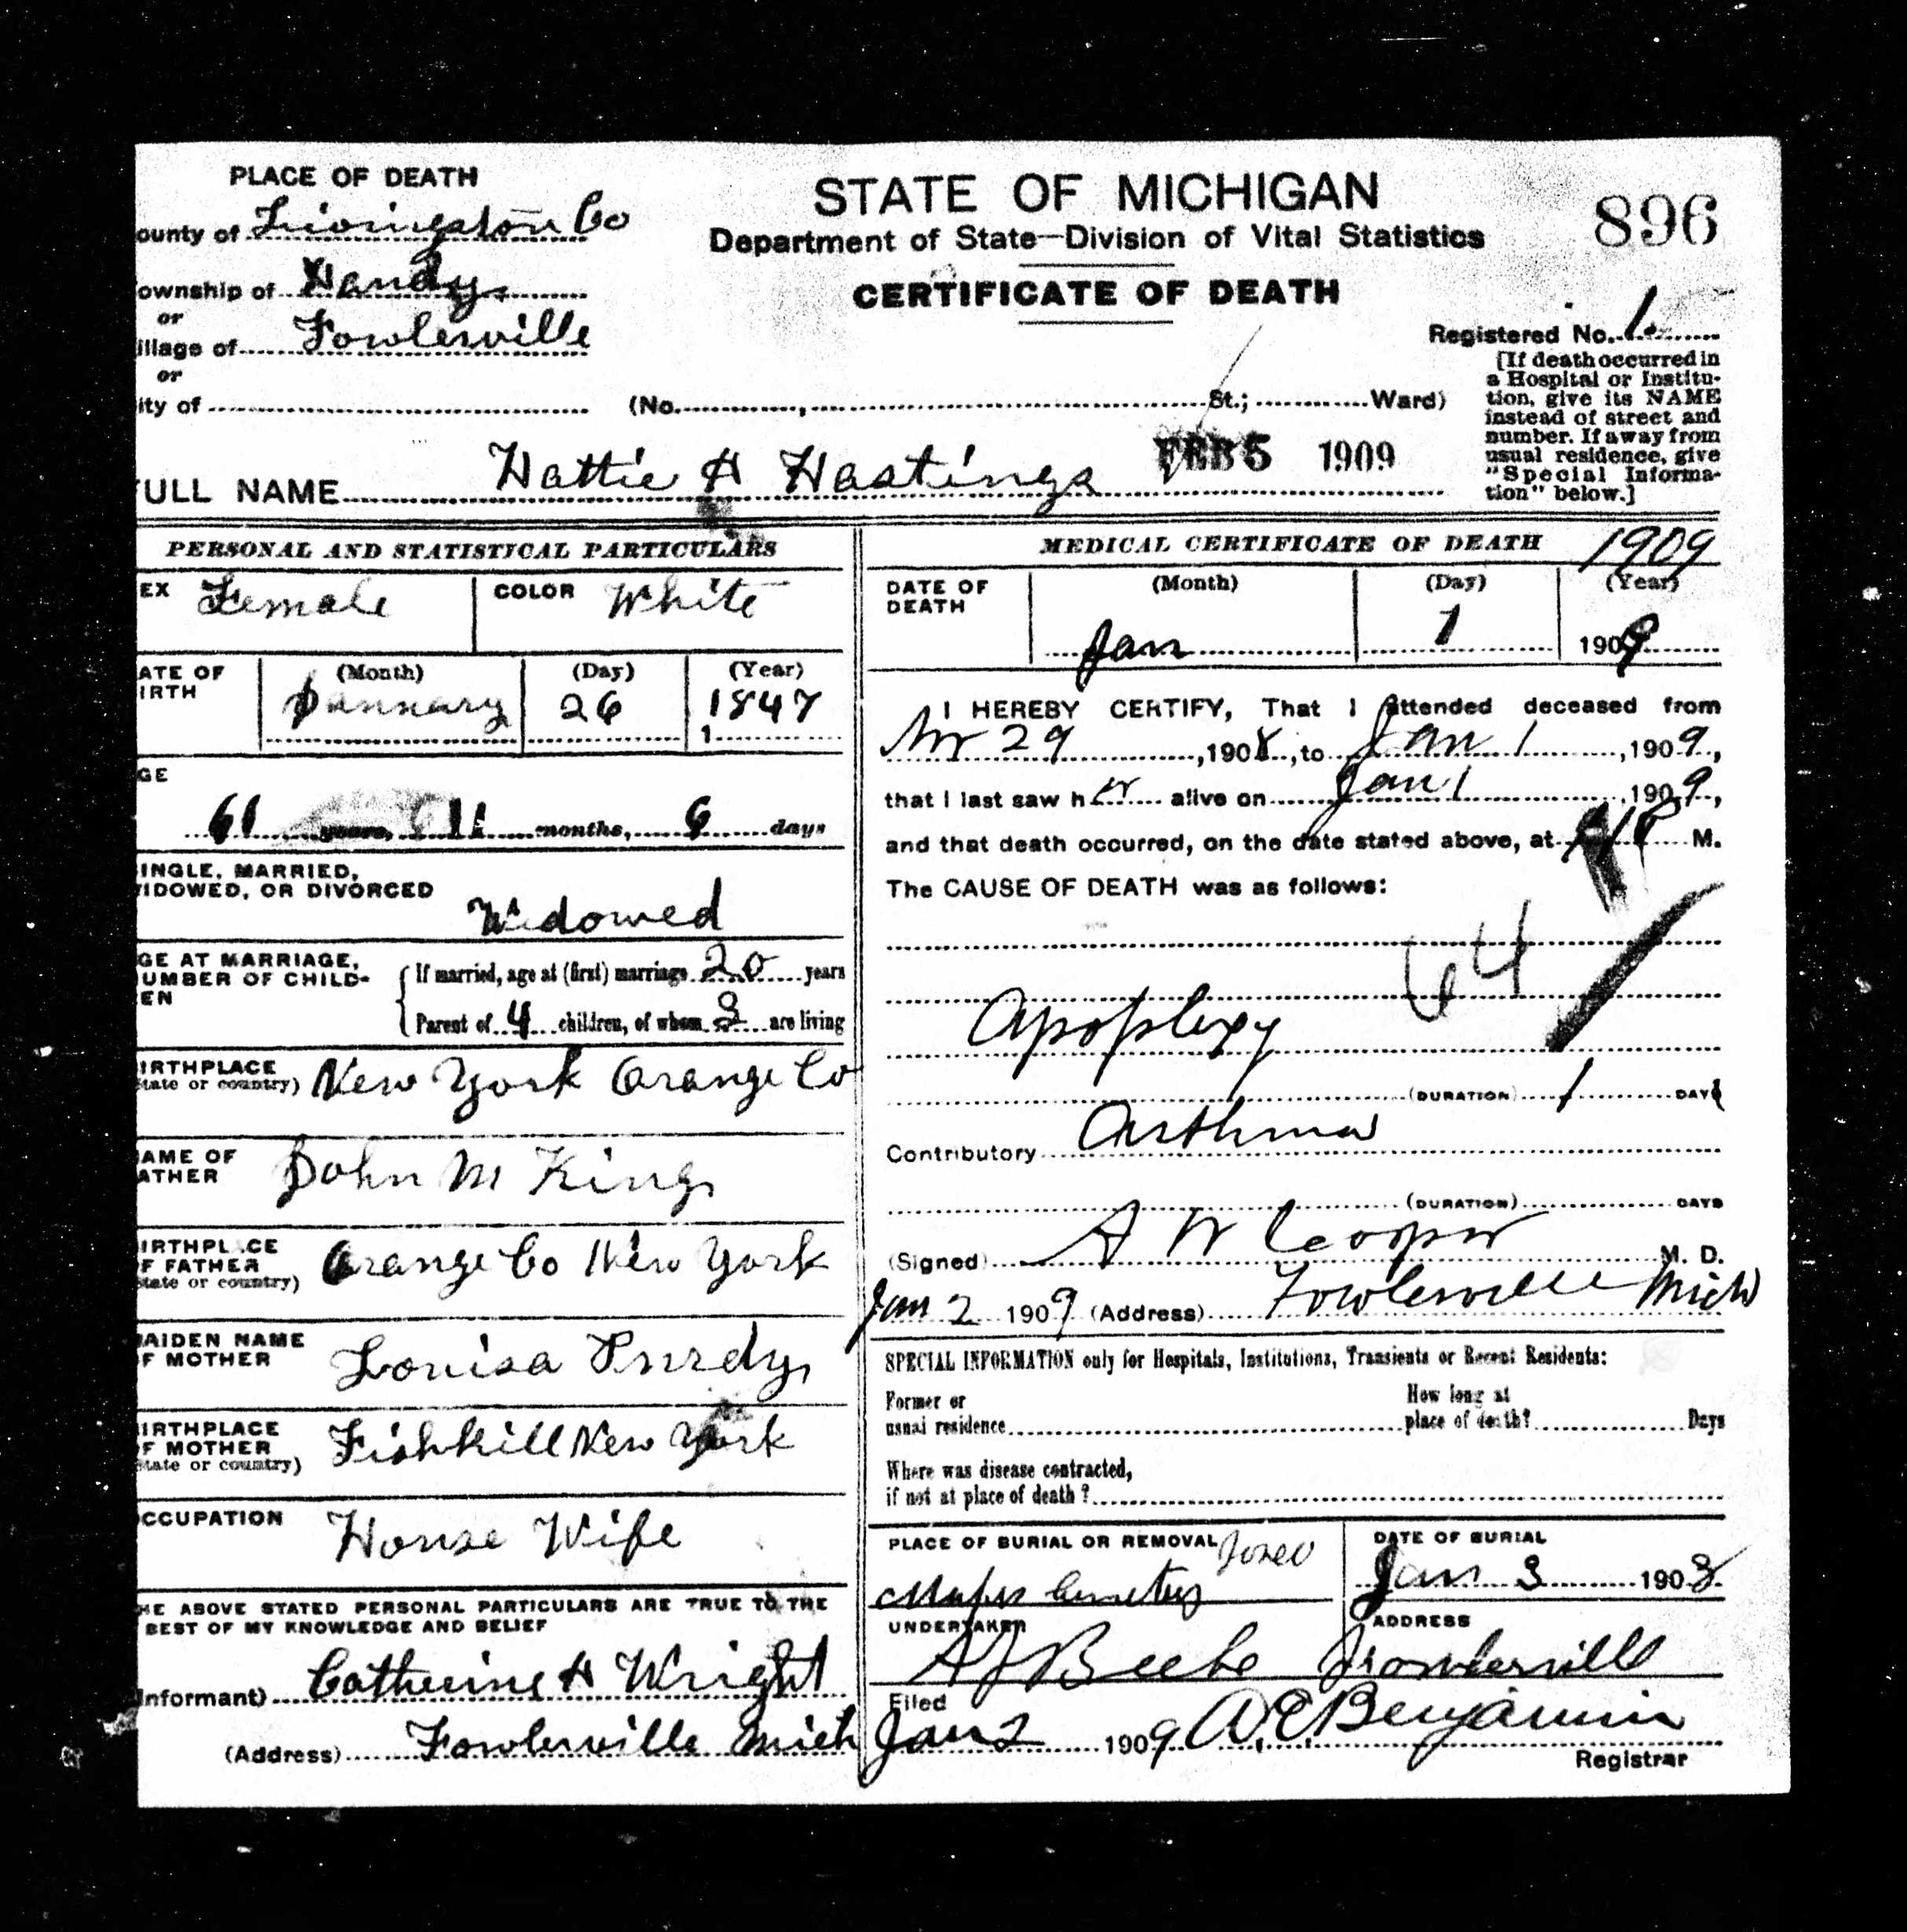 PLACE OF DEATH
ounty of Livingston Co
ownship of Handy
or
illage of Fowlerville
or
ity of
STATE OF MICHIGAN
Department of State—Division of Vital Statistics
CERTIFICATE OF DEATH
896
Registered No. 1
(No. , St.; Ward)
[If death occurred in
a Hospital or Institu-
tion, give its NAME
instead of street and
number. If away from
usual residence, give
"Special Informa-
tion" below.]
FEB 5 1909
ULL NAME Hattie H Hastings
PERSONAL AND STATISTICAL PARTICULARS
EX Female COLOR White
ATE OF
IRTH
(Month) (Day) (Year)
January 26 1847
1
GE
61 years, 11 months, 6 days
INGLE, MARRIED,
IDOWED, OR DIVORCED
Widowed
GE AT MARRIAGE,
UMBER OF CHILD-
EN
If married, age at (first) marriage 20 years
Parent of 4 children, of whom 3 are living
IRTHPLACE
tate or country) New York Orange Co
AME OF
ATHER
John M King
IRTHPLACE
F FATHER
tate or country) Orange Co New York
AIDEN NAME
F MOTHER
Louisa Purdy
IRTHPLACE
F MOTHER
tate or country) Fishkill New York
CCUPATION
House Wife
HE ABOVE STATED PERSONAL PARTICULARS ARE TRUE TO THE
BEST OF MY KNOWLEDGE AND BELIEF
Informant) Catherine H Wright
(Address) Fowlerville Mich
MEDICAL CERTIFICATE OF DEATH 1909
DATE OF
DEATH
(Month) (Day) (Year)
Jan 1 1909
I HEREBY CERTIFY, That I attended deceased from
29 , 1908, to Jan 1 , 1909,
that I last saw her alive on Jan 1 , 1909,
and that death occurred, on the date stated above, at M.
The CAUSE OF DEATH was as follows:
64
Apoplexy
(DURATION) 1 DAYS
Contributory Asthma
(DURATION) DAYS
(Signed) A W Cooper M. D.
Jan 2 1909 (Address) Fowlerville Mich
SPECIAL INFORMATION only for Hospitals, Institutions, Transients or Recent Residents:
Former or
usual residence
How long at
place of death? Days
Where was disease contracted,
if not at place of death?
PLACE OF BURIAL OR REMOVAL
Cemetery
DATE OF BURIAL
Jan 3 190
UNDERTAKER
A J Beebe
ADDRESS
Fowlerville
Filed
Jan 2 1909 A. E. Benjamin
Registrar